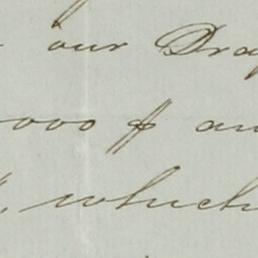 our Dra
000 $ an
which